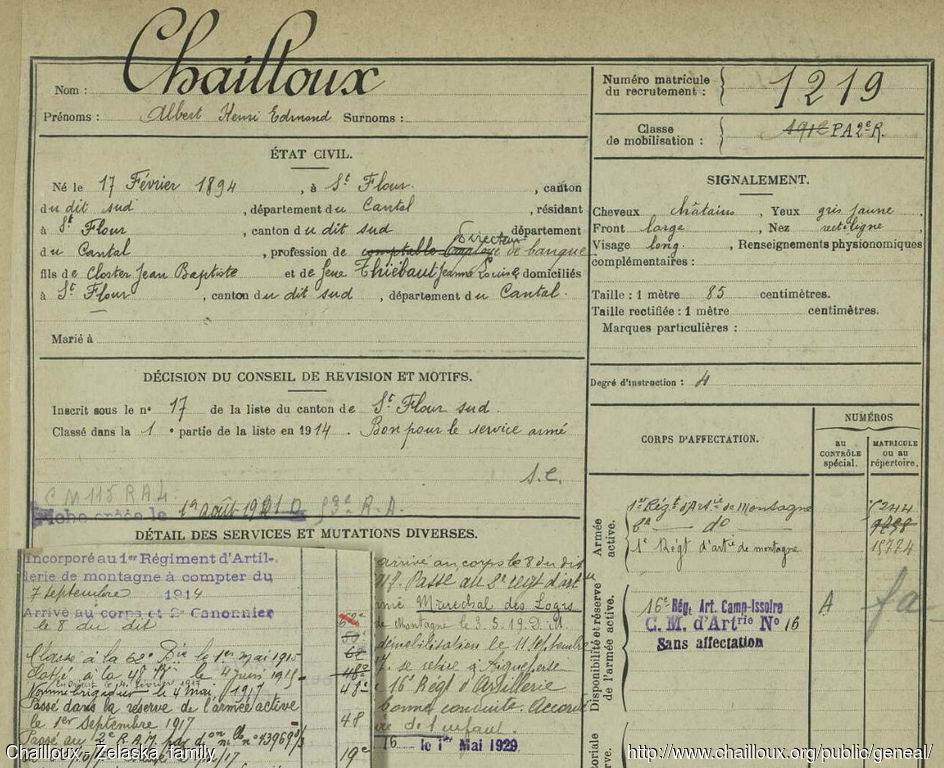 Nom : Chailloux
Prénoms : Albert Henri Edmond Surnoms :
Numéro matricule du recrutement : 1219
Classe de mobilisation : 1912 PA 2e R.
ÉTAT CIVIL.
Né le 17 Février 1894, à St Flour, canton
du dit sud, département du Cantal, résidant
à St Flour, canton du dit sud, département
Directeur
du Cantal, profession de comptable Employé de banque
fils de Closter Jean Baptiste et de feue Thiébaut Jeanne Louise domiciliés
à St Flour, canton du dit sud, département du Cantal.
Marié à
SIGNALEMENT.
Cheveux châtains, Yeux gris jaune
Front large, Nez rectiligne
Visage long, Renseignements physionomiques
complémentaires :
Taille : 1 mètre 85 centimètres.
Taille rectifiée : 1 mètre centimètres.
Marques particulières :
Degré d'instruction : 4
DÉCISION DU CONSEIL DE REVISION ET MOTIFS.
Inscrit sous le no 17 de la liste du canton de St Flour sud.
Classé dans la 1e partie de la liste en 1914. Bon pour le service armé
S.C.
CM 115 RAL
le 1er août 1921 53e R.A.
DÉTAIL DES SERVICES ET MUTATIONS DIVERSES.
Incorporé au 1er Régiment d'Artil-
lerie de montagne à compter du
7 septembre 1914
Arrivé au corps et 2e Canonnier
le 8 du dit
Classé à la 62e Bie le 1er mai 1915
Passé à la 48e Bie le 4 juin 1915
Nommé brigadier le 4 mai 1917
Passé dans la réserve de l'armée active
le 1er septembre 1917
Passé au 2e R.A.M.
62e
48e
48e
48
19e
arrivé au corps le 8 du dit
Passé au 2e régt d'art
Maréchal des Logis
de Montagne le 3.5.19.
démobilisation le 11 septembre
se retire à Aigueperse
16e Régt d'Artillerie
bonne conduite. Accordé
16 le 1er Mai 1929
CORPS D'AFFECTATION.
NUMÉROS
AU CONTRÔLE spécial.
MATRICULE ou au répertoire.
Armée active.
1er Régt d'Artie de Montagne 5244
2e do
1e Régt d'artie de montagne 15774
Disponibilité et réserve de l'armée active.
16e Rég. Art. Camp-Issoire A
C. M. d'Artrie No 16
Sans affectation
fa
Chailloux - Zelaska family
http://www.chailloux.org/public/geneal/